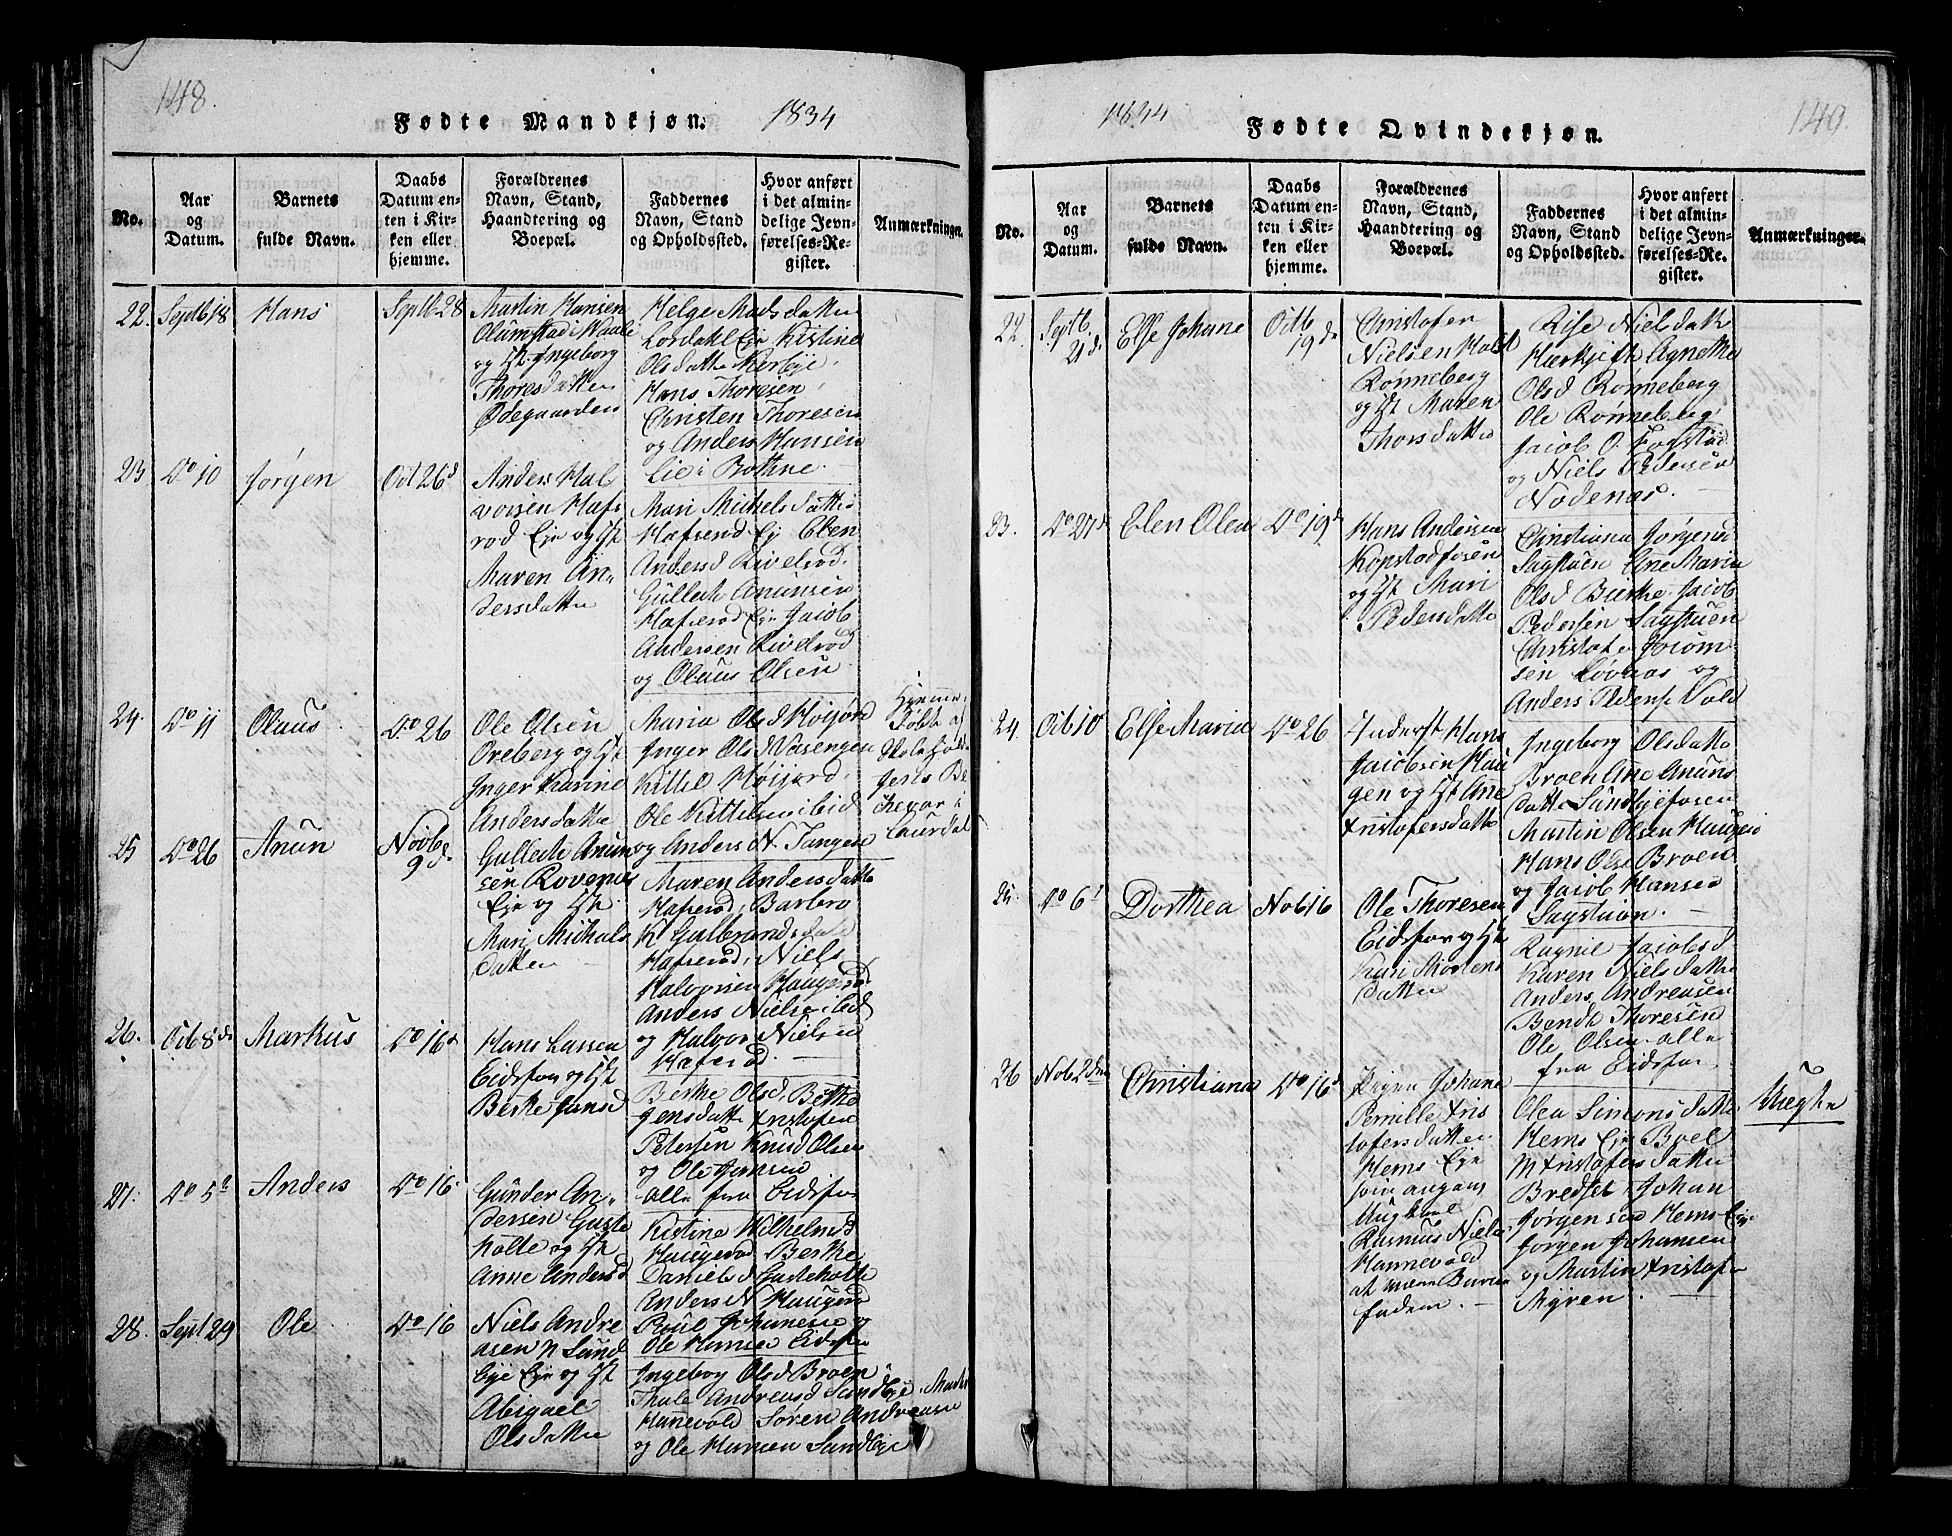 148.
Fødte Mandkjøn. 1834
No.
Aar
og
Datum.
Barnets
fulde Navn.
Daabs
Datum en-
ten i Kir-
ken eller
hjemme.
Forældrenes
Navn, Stand,
Haandtering og
Boepæl.
Faddernes
Navn, Stand
og Opholdssted.
Hvor anført
i det almin-
delige Jevn-
førelses-Re-
gister.
Anmærkninger.
22. Septb 18 Hans Septb 28
Martin Hansen
Ølumstad i Waale
og H. Ingeborg
Thoresdatter
Ødegaarden
Helge Madsdatter
Lørdahl Eje Kistine
Olsdatter Kerbye
Hans Thoresen
Christen Thoresen
og Anders Hansen
Lie i Bothne.
23 Do 10 Jørgen Oct 26d
Anders Hal
vorsen Haf
rød Eje og H
Maren An-
dersdatter
Mari Michelsdatter
Hæfserød Ej Elen
Andersd Kivelrød.
Gulleck Anunsen
Hæfserød Eje Jacob
Andersen Kivelrød
og Olaus Olsen
24. Do 11 Olaus Do 26
Ole Olsen
Oreberg og H
Inger Karine
Andersdatter
Maria Olsd Høijord
Inger Olsd Vasengen
Kittil Høijord.
Ole Kittilsen ibid
og Anders N. Tangen
Hjemme
døbt af
Skoleholder
Jens Be
ckevar i
Laurdal
25 Do 26 Anun Novb 9d.
Gulleck Anun
sen Rovenæs
Eje og H.
Mari Michels
datter
Maren Andersdatter
Hafserød, Barbro
K Gulbrandsdatter
Hafserød, Niels
Halvorsen Haugerød
Anders Nielsen ibid
og Halvor Nielsen
Hæfserød.
26. Octb 8de Markus Do 16d
Hans Larsen
Eidsfos og H
Berthe Jansd
Berthe Olsd. Berthe
Jensdatter Kristofen
Petersen Knud Olsen
og Ole Jansen
alle fra Eidsfos
27. Do 5te Anders Do 16
Gunder An-
dersen Guste
holte og H
Anne Andersd
Kistine Wilhelmsd
Haugerød Berthe
Danielsd Gusteholte
Anders N Haugerød
Paul Johansen og
Ole Hansen Eidsfos
28. Sept 29 Ole Do 16
Niels Andre
asen N Sand
bye Eje og H
Abigael
Olsdatter
Ingeborg Olsd Broen
Thale Andreasd Sandbye. Martin
Hanevold Søren Andreasen
og Ole Hansen Sandbye
1834
Fødte Qvindekjøn.
149.
No.
Aar
og
Datum.
Barnets
fulde Navn.
Daabs
Datum en-
ten i Kir-
ken eller
hjemme.
Forældrenes
Navn, Stand,
Haandtering og
Boepæl.
Faddernes
Navn, Stand
og Opholdssted.
Hvor anført
i det almin-
delige Jevn-
førelses-Re-
gister.
Anmærkninger.
22. Septb. 21d. Else Johane Octb 19de
Christofer
Nielsen Holst
Rønneberg
og H Maren
Thorsdatter
Rise Nielsdatter
Agnethe
Olsd Rønneberg
Ole Rønneberg
Jacob O. Fogstad
og Niels Pedersen
Nodenæs.
23. Do 27d Elen Olea Do 19d
Hans Andersen
Kopstadfosen
og H Mari
Pedersdatter
Christiana Jørgensd
Sagstuen Ane Maria
Olsd Bierke Jacob
Pedersen Sagstuen
Christofer Joiom
sen Løvaas og
Anders Pedersen Vold
24. Octb 10 Else Maria Do 26
Inderst Hans
Jacobsen Hau
gen og H Ane
Kristofersdatter
Ingeborg Olsdatter
Broen Ane Anuns
datter Sandbyefosen
Martin Olsen Haugen
Hans Olsen Broen
og Jacob Hansen
Sagstuen.
25. Do 6t Dorthea Novb 16
Ole Thoresen
Eidsfos og H
Kari Mortens
datter
Ragnil Jacobsd
Karen Nielsdatter
Anders Andreasen
Bendt Thoresen
Ole Olsen alle
fra Eidsfos
26 Novb 2den Christiana Do 16d
Pigen Johane
Pernille Kris
tofersdatter
Hems Eje
som angav
Ungkarl
Rasmus Niels
Hannevold
at være Barne
faderen.
Olea Simonsdatter
Hems Eje Boel
M Kristofersdatter
Bredset, Johan
Jørgensen Hems Eje
Jørgen Johansen
og Martin Kristofer
Myren.
Uægte